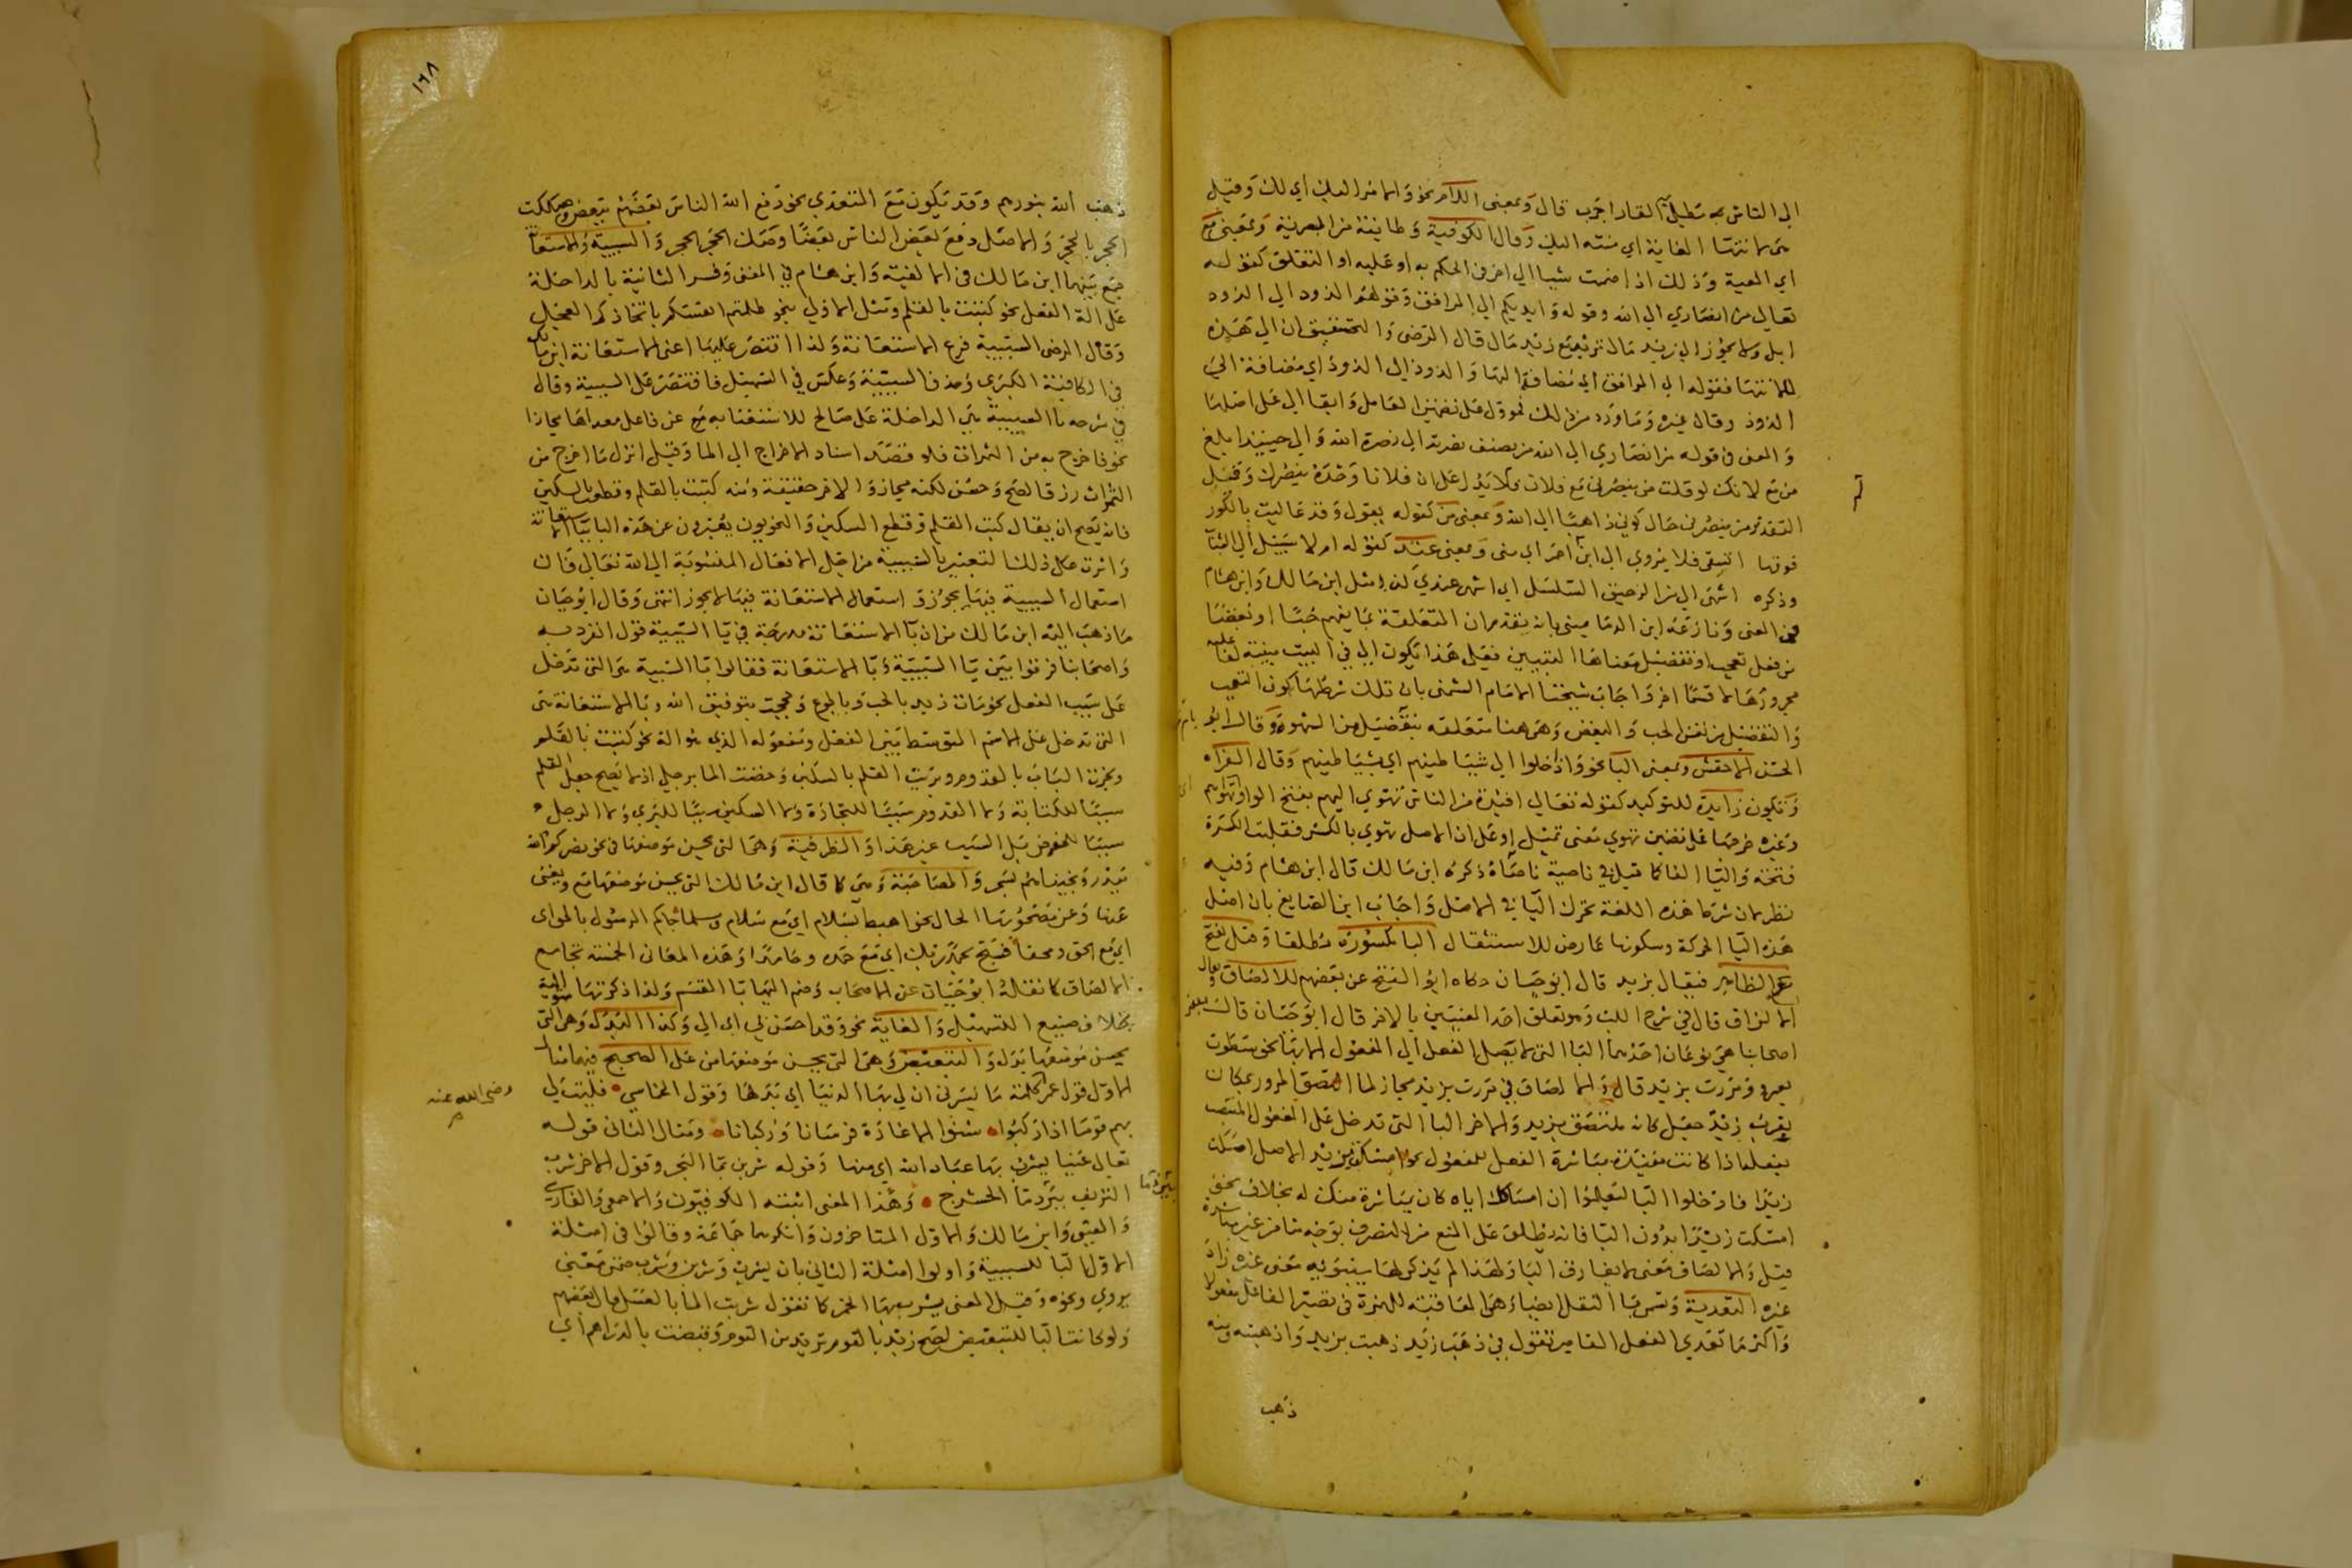 الى الناس به مطلي القار اجرب قال وبمعنى اللام نحو والامر اليك اي لك وقيل
هي لانتها الغاية اي منته اليك وقال الكوفية وطايفة من البصرية وبمعنى مع
اي المعية وذلك اذا ضممت شيا الى اخر في الحكم به او عليه او التعلق كقوله
تعالى من انصاري الى الله وقوله وايديكم الى المرافق وقولهم الذود الى الذود
ابل ولا يجوز الى زيد مال تريد مع زيد مال قال الرضى والتحقيق ان الى هذه
للانتها فقوله الى المرافق اي مضافة اليها والذود الى الذود اي مضافة الى
الذود وقال غيره وما ورد من ذلك مؤول على تضمين العامل وابقا الى على اصلها
والمعنى في قوله من انصاري الى الله من يضيف نصرته الى نصرة الله والى حينيذ ابلغ
من مع لانك لو قلت من ينصرني مع فلان فلا يدل على ان فلانا وحده ينصرك وقيل
التقدير من ينصرني حال كوني ذاهبا الى الله وبمعنى من كقوله يقول وقد عاليت بالكور
فوقها ايسقى فلا يروي الى ابن احمر اي منى وبمعنى عند كقوله ام لا سبيل الى الشباب
وذكره اشهى الى من الرحيق السلسل اي اشهى عندي كذا مثل ابن مالك وابن هشام
في المغنى ونازعه ابن الدماميني بانه تقدم ان المتعلقة بما يفهم حبا او بغضا
من فعل تعجب او تفضيل معناها التبيين فعلى هذا تكون الى في البيت مبينة لفاعلية
مجرورها لا قسما اخر واجاب شيخنا الامام الشمنى بان تلك شرطها كون التعجب
والتفضيل من نفس الحب والبغض وهى هنا متعلقه بتفضيل من الشهوة وقال ابو
الحسن الاخفش وبمعنى البا نحو واذا خلوا الى شياطينهم اي بشياطينهم وقال الفراء
وتكون زايدة للتوكيد كقوله تعالى افيدة من الناس تهوي اليهم بفتح الواو
وغيره خرجها على تضمين تهوي معنى تميل او على ان الاصل تهوي بالكسر فقلبت الكسرة
فتحة واليا الفا كما قيل في ناصية ناصاة ذكره ابن مالك قال ابن هشام وفيه
نظر لان شرط هذه اللغة تحرك اليا في الاصل واجاب ابن الصايغ بان اصل
هذه اليا الحركة وسكونها عارض للاستثقال البا مكسورة مطلقا وقيل تفتح
مع الظاهر فيقال بزيد قال ابو حيان حكاه ابو الفتح عن بعضهم للالصاق
الالزاق قال في شرح اللب وهو تعلق احد المعنيين بالاخر قال ابو حيان قالت
اصحابنا هي نوعان احدهما البا التي لا يصل الفعل الى المفعول الا بها نحو سطوت
بعمرو ومررت بزيد قال والالصاق في مررت بزيد مجاز لما التصق المرور بمكان
بقرب زيد جعل كانه ملتصق بزيد والاخر البا التي تدخل على المفعول المنتصب
بفعله اذا كانت مفيدة مباشرة الفعل للمفعول نحو امسكت بزيد الاصل امسكت
زيدا فادخلوا البا ليعلموا ان امساكك اياه كان بمباشرة منك له بخلاف نحو
امسكت زيدا بدون البا فانه يطلق على المنع من التصرف بوجه ما من غير مباشرة
قيل والالصاق معنى لا يفارق البا ولهذا لم يذكر لها سيبويه معنى غيره زاد
غيره التعدية وتسمى با النقل ايضا وهى المعاقبة للهمزة في تصيير الفاعل مفعولا
واكثر ما تعدي الفعل القاصر تقول في ذهب زيد ذهبت بزيد واذهبته ومنه
ذهب
١٦٨
ذهب الله بنورهم وقد تكون مع المتعدي نحو دفع الله الناس بعضهم ببعض وصككت
الحجر بالحجر والاصل دفع بعض الناس بعضا وصك الحجر الحجر والسببية والاستعانة
جمع بينهما ابن مالك في الالفية وابن هشام في المغنى وفسر الثانية بالداخلة
على الة الفعل نحو كتبت بالقلم ومثل الاولى بنحو ظلمتم انفسكم باتخاذكم العجل
وقال الرضى السببية فرع الاستعانة ولذا اقتصر عليها اعنى الاستعانة ابن مالك
في الكافية الكبرى وحذف السببية وعكس في التسهيل فاقتصر على السببية وقال
في شرحه با السببية هي الداخلة على صالح للاستغنا به عن فاعل معداها مجازا
نحو فاخرج به من الثمرات فلو قصد اسناد الاخراج الى الما وقيل انزل ما اخرج من
الثمرات رزقا لصح وحسن لكنه مجاز والاخر حقيقة ومنه كتبت بالقلم وقطعت بالسكين
فانه يصح ان يقال كتب القلم وقطع السكين والنحويون يعبرون عن هذه البا ببا الاستعانة
واثرت على ذلك التعبير بالسببية من اجل الافعال المنسوبة الى الله تعالى فان
استعمال السببية فيها يجوز واستعمال الاستعانة فيها لا يجوز انتهى وقال ابو حيان
ما ذهب اليه ابن مالك من ان با الاستعانة مدرجة في با السببية قول انفرد به
واصحابنا فرقوا بين با السببية وبا الاستعانة فقالوا با السببية هي التي تدخل
على سبب الفعل نحو مات زيد بالحب وبالجوع وحججت بتوفيق الله وبا الاستعانة هى
التي تدخل على الاسم المتوسط بين الفعل ومفعوله الذي هو الة نحو كتبت بالقلم
ونجرت الباب بالقدوم وبريت القلم بالسكين وخضت الما برجلي اذ لا يصح جعل القلم
سببا للكتابة ولا القدوم سببا للنجارة ولا السكين سببا للبري ولا الرجل
سببا للخوض بل السبب غير هذا والظرفية وهى التي يحسن موضعها في نحو نصركم الله
ببدر ونجيناهم بسحر والمصاحبة وهى كما قال ابن مالك التي يحسن موضعها مع ويغنى
عنها وعن مصحوبها الحال نحو اهبط بسلام اي مع سلام ومسلما جاكم الرسول بالحق
اي مع الحق ومحقا فسبح بحمد ربك اي مع حمده وحامدا وهذه المعاني الخمسة تجامع
الالصاق كما نقله ابو حيان عن الاصحاب وضم اليها با القسم ولذا ذكرتها متوالية
بخلاف صنيع التسهيل والغاية نحو وقد احسن بي اي الى وكذا البدل وهى التي
يحسن موضعها بدل والتبعيض وهى التي يحسن موضعها من على الصحيح فيهما مثال
الاول قول عمر كلمة ما يسرني ان لي بها الدنيا اي بدلها وقول الحماسي فليت لي
رضى الله عنه
بهم قوما اذا ركبوا شنوا الاغارة فرسانا وركبانا ومثال الثاني قوله
تعالى عينا يشرب بها عباد الله اي منها وقوله شربن بما البحر وقول الاخر شرب
النزيف ببرد ما الحشرج وهذا المعنى اثبته الكوفيون والاصمعي والفارسي
والقتبي وابن مالك والاول المتاخرون وانكرهما جماعة وقالوا في امثلة
الاول البا للسببية واولوا امثلة الثاني بان يشرب وشربن وشرب ضمن معنى
يروي ونحوه وقيل المعنى يشرب بها الخمر كما تقول شربت الما بالعسل قال بعضهم
ولو كانت البا للتبعيض لصح زيد بالقوم تريد من القوم وقبضت بالدراهم اي